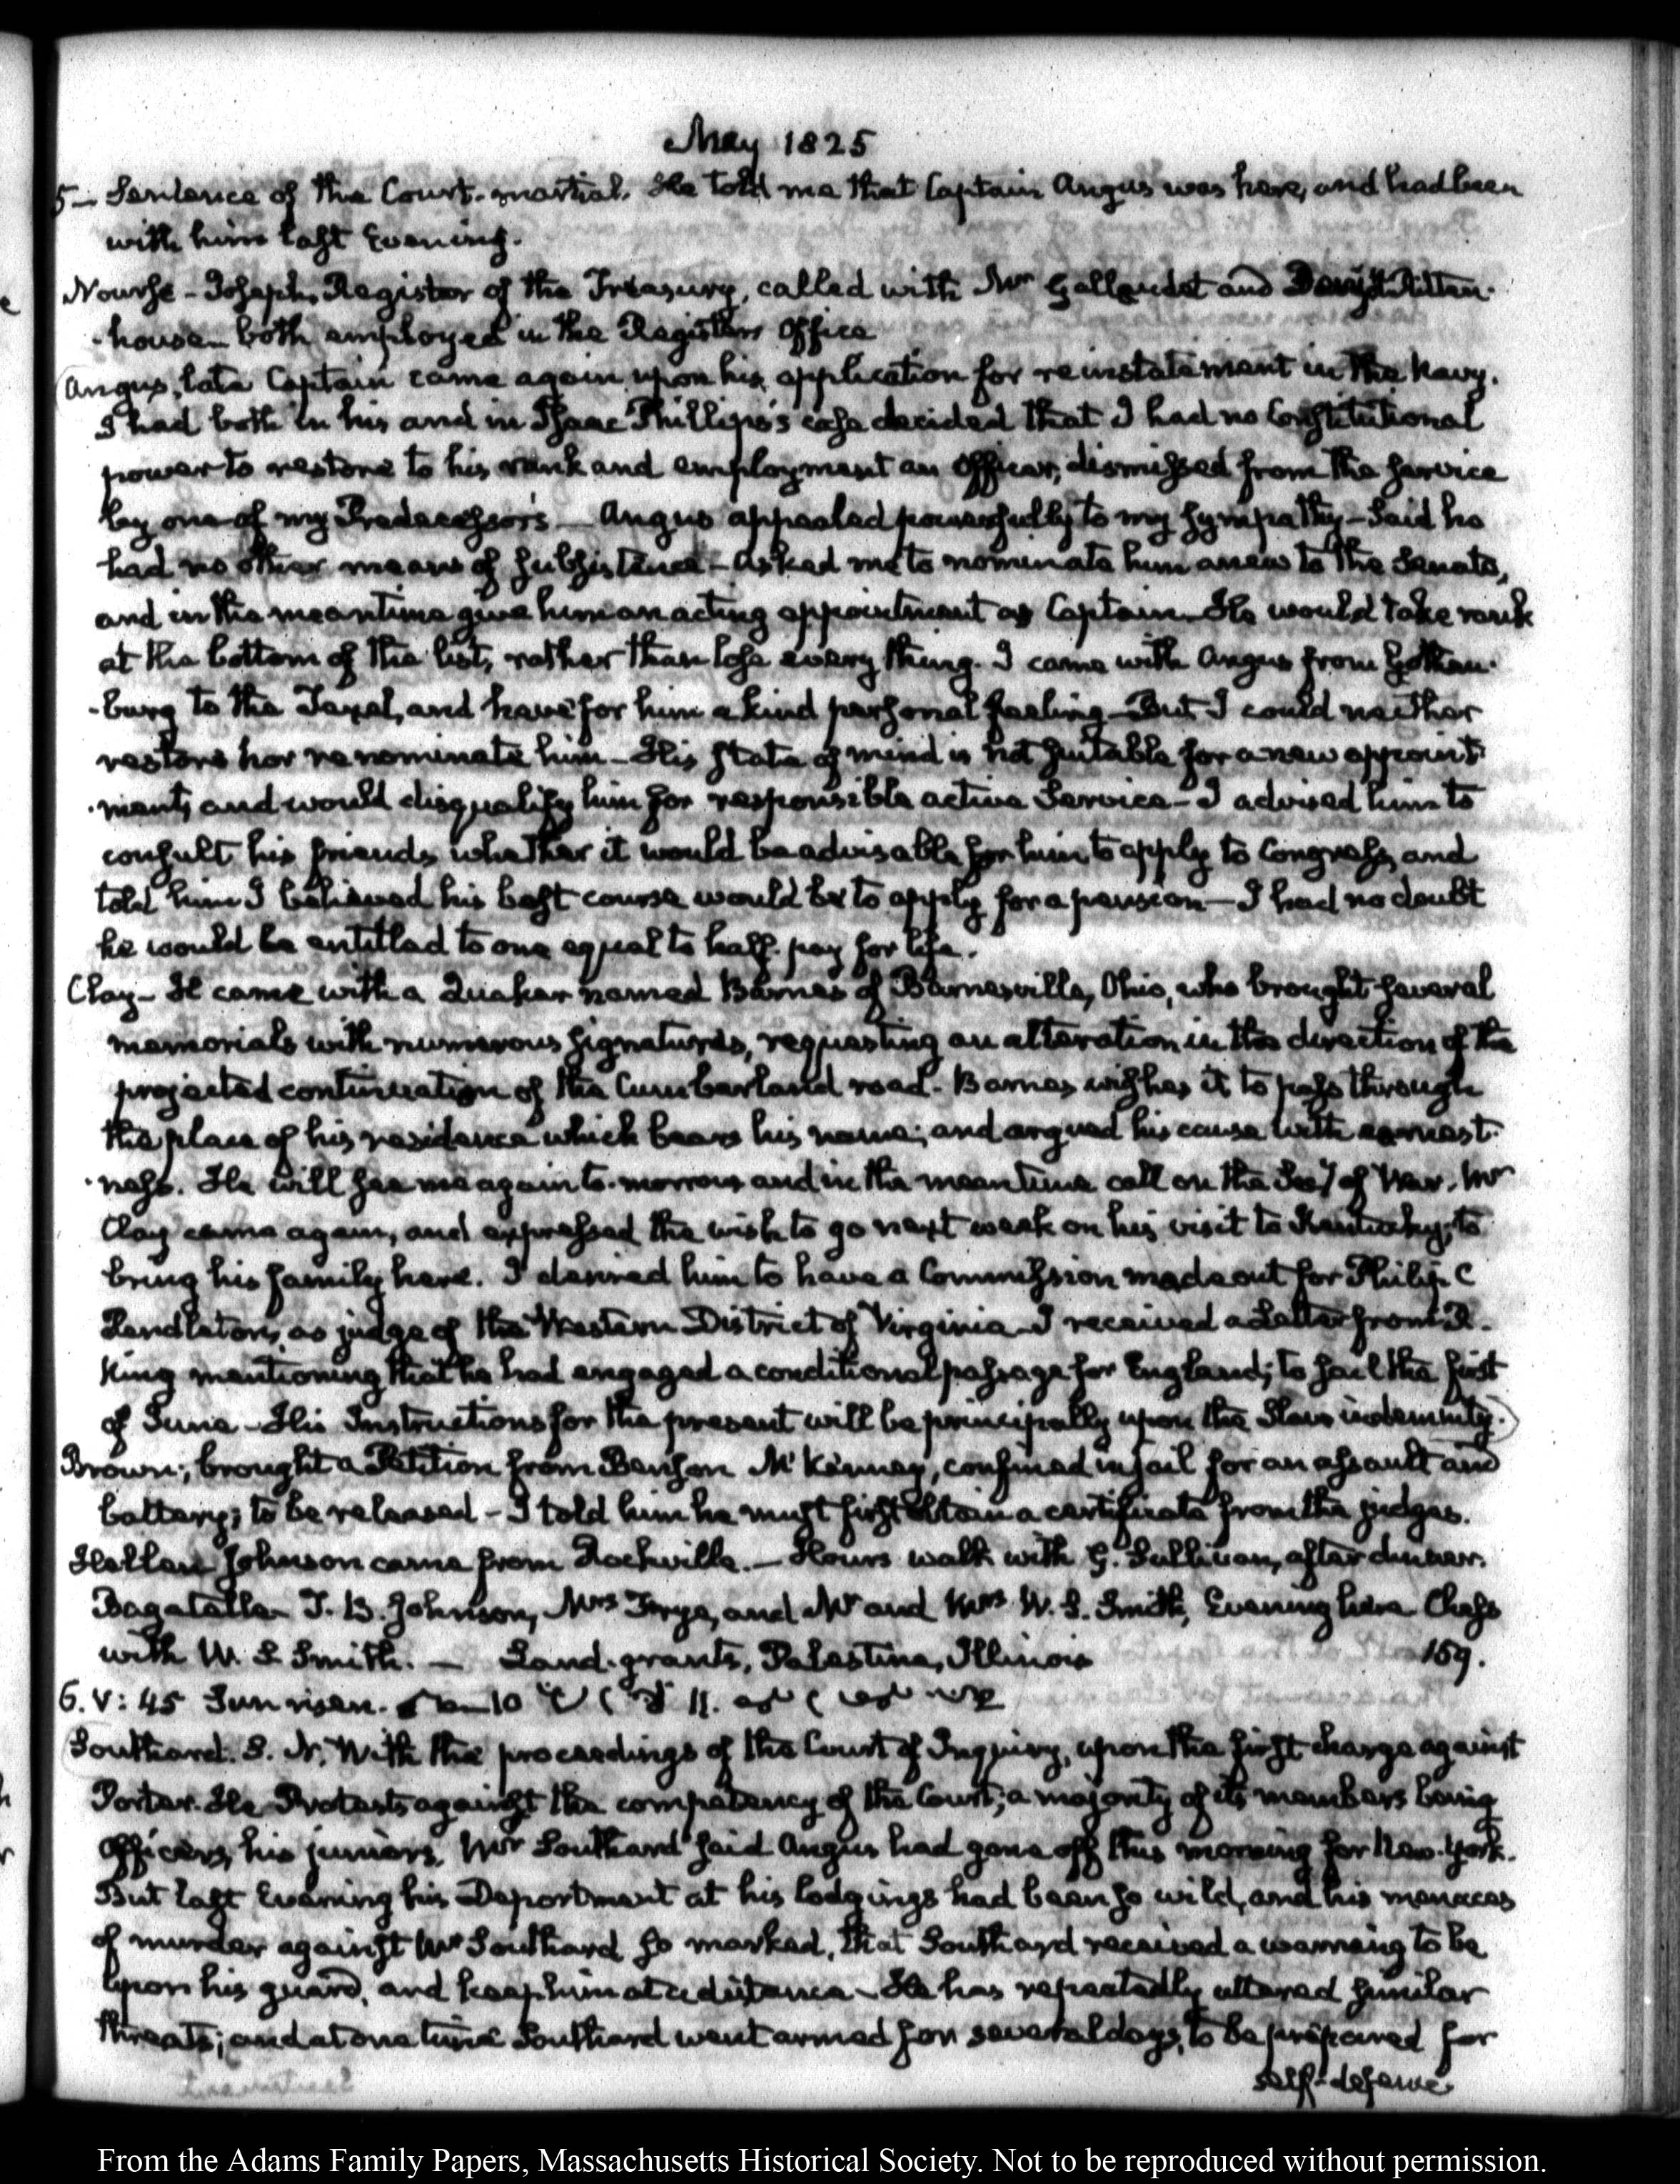 May 1825
5— Sentence of the Court-martial. He told me that Captain Angus was here, and had been
with him last Evening.
Nourse - Joseph, Register of the Treasury, called with Mr Gallaudet and Ritten-
-house— both employed in the Registers Office
Angus, late Captain came again upon his application for reinstatement in the Navy.
I had both in his and in Isaac Phillips's case decided that I had no Constitutional
power to restore to his rank and employment an Officer, dismissed from the service
by one of my Predecessors — Angus appealed powerfully to my sympathy - Said he
had no other means of subsistence - asked me to nominate him anew to the Senate,
and in the meantime give him an acting appointment as Captain. He would take rank
at the bottom of the list, rather than lose every thing. I came with Angus from Gothen-
-burg to the Texel, and have for him a kind personal feeling — But I could neither
restore nor renominate him - His state of mind is not suitable for a new appoint-
-ment, and would disqualify him for responsible active Service - I advised him to
consult his friends whether it would be advisable for him to apply to Congress, and
told him I believed his best course would be to apply for a pension — I had no doubt
he would be entitled to one equal to half-pay for life.
Clay - H came with a Quaker named Barnes of Barnesville, Ohio, who brought several
memorials with numerous signatures, requesting an alteration in the direction of the
projected continuation of the Cumberland road. Barnes wishes it to pass through
the place of his residence which bears his name; and argued his cause with earnest-
-ness. He will see me again to-morrow and in the meantime call on the Secy of War. Mr
Clay came again, and expressed the wish to go next week on his visit to Kentucky, to
bring his family here. I desired him to have a Commission made out for Philip C
Pendleton, as judge of the Western District of Virginia - I received a Letter from R.
King mentioning that he had engaged a conditional passage for England; to sail the first
of June - His Instructions for the present will be principally upon the Slave indemnity.)
Brown; brought a Petition from Benson McKenney, confined in jail for an assault and
battery; to be released - I told him he must first obtain a certificate from the judges.
Hellen Johnson came from Rockville. — Hours walk with G. Sullivan, after dinner.
Bagatelle T. B. Johnson, Mrs Frye, and Mr and Mrs W. S. Smith, Evening here Chess
with W. S. Smith. — Land-grants, Palestine, Illinois 159.
6. V: 45 Sun risen.
Southard. S. N. With the proceedings of the Court of Inquiry, upon the first charge against
Porter. He Protests against the competency of the Court; a majority of its members being
Officers, his juniors. Mr Southard said Angus had gone off this morning for New-York.
But last Evening his Deportment at his lodgings had been so wild, and his menaces
of murder against Mr Southard so marked, that Southard received a warning to be
upon his guard, and keep him at a distance - He has repeatedly uttered similar
threats; and at one time Southard went armed for several days, to be prepared for
self-defence
From the Adams Family Papers, Massachusetts Historical Society. Not to be reproduced without permission.